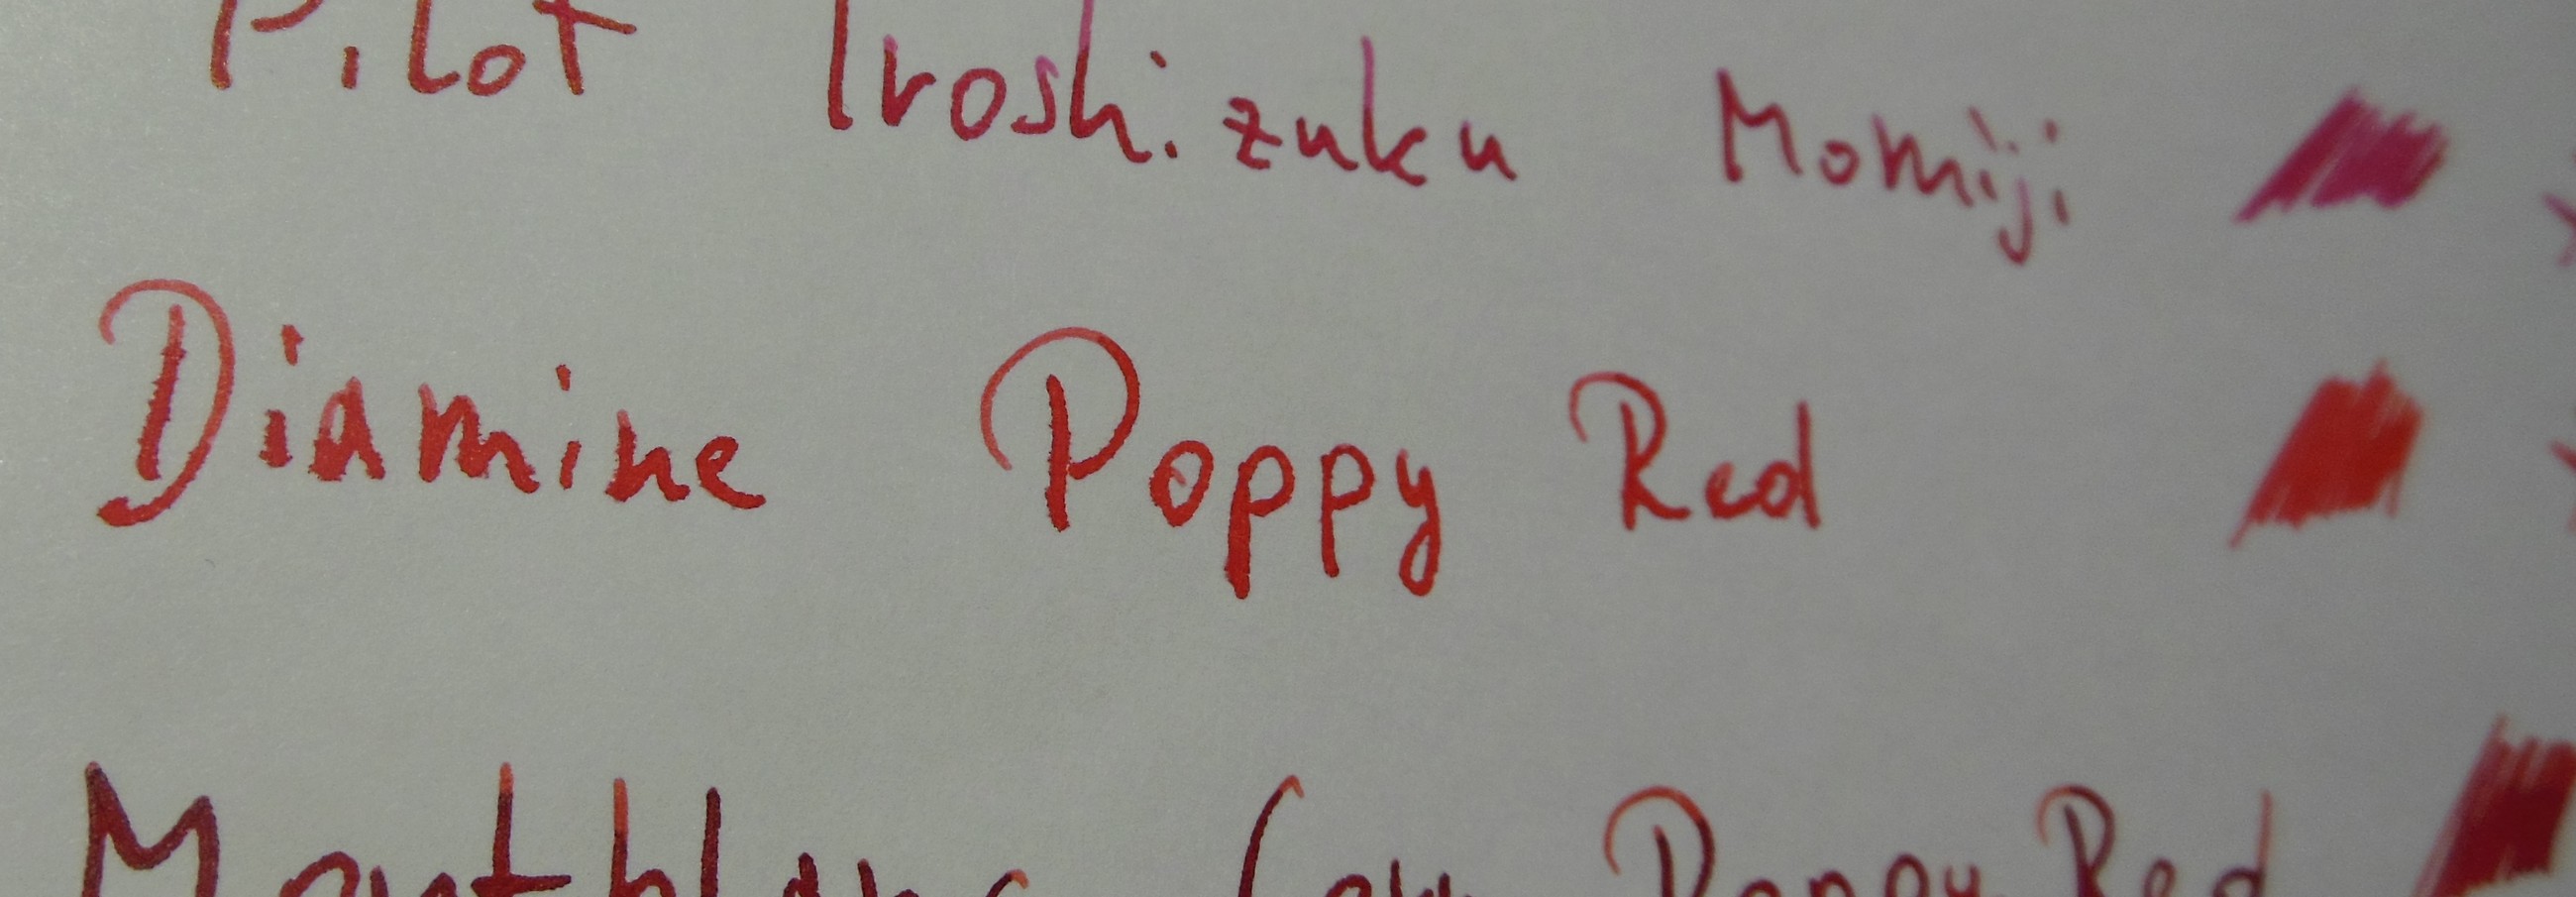 Pilot Iroshizuku Momiji
Diamine Poppy Red
Montblanc Corn Poppy Red